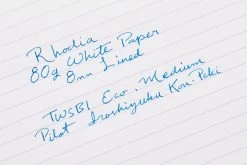 Rhodia
80g White Paper
8mm Lined
TWSBI Eco, Medium
Pilot Iroshizuku Kon-Peki